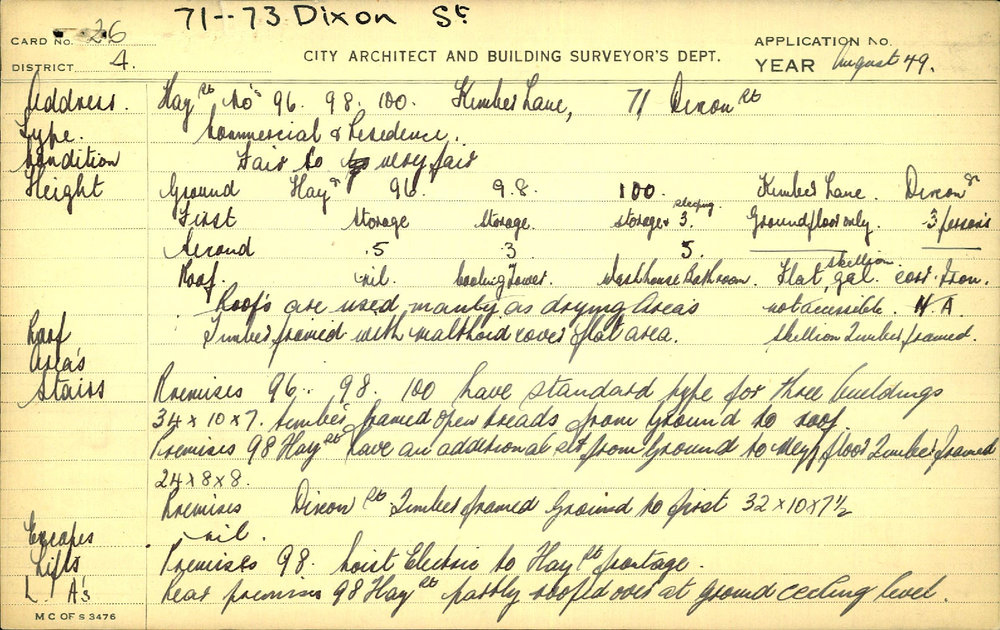 71--73 Dixon St
CARD No. 26
CITY ARCHITECT AND BUILDING SURVEYOR'S DEPT.
APPLICATION No.
DISTRICT 4.
YEAR August 49.
Address. Hay St No's 96. 98. 100. Kimber Lane, 71 Dixon St
Type. Commercial & Residence.
Condition Fair to very fair
Height Ground Hay St 96. 98. 100 Kimber Lane. Dixon St
sleeping
First Storage Storage. Storage & 3. Ground floor only. 3 persons
Second .5 .3 5.
skellion
Roof. nil. Cooling Tower. Washhouse Bathroom. Flat, gal. corr. Iron.
Roof's are used mainly as drying areas not accessible. N.A.
Roof Timber framed with malthoid cover flat area. skellion Timber framed.
Area's
Stairs Premises 96.. 98. 100 have standard type for three buildings
34 x 10 x 7. timber framed open treads from Ground to roof
Premises 98 Hay St have an additional st from Ground to Mezz floor Timber framed
24 x 8 x 8.
Premises Dixon St Timber framed Ground to first 32 x 10 x 7½
Escapes nil.
Lifts Premises 98. hoist Electric to Hay St frontage.
L. A's Rear premises 98 Hay St partly roofed over at ground ceiling level.
M C OF S 3476